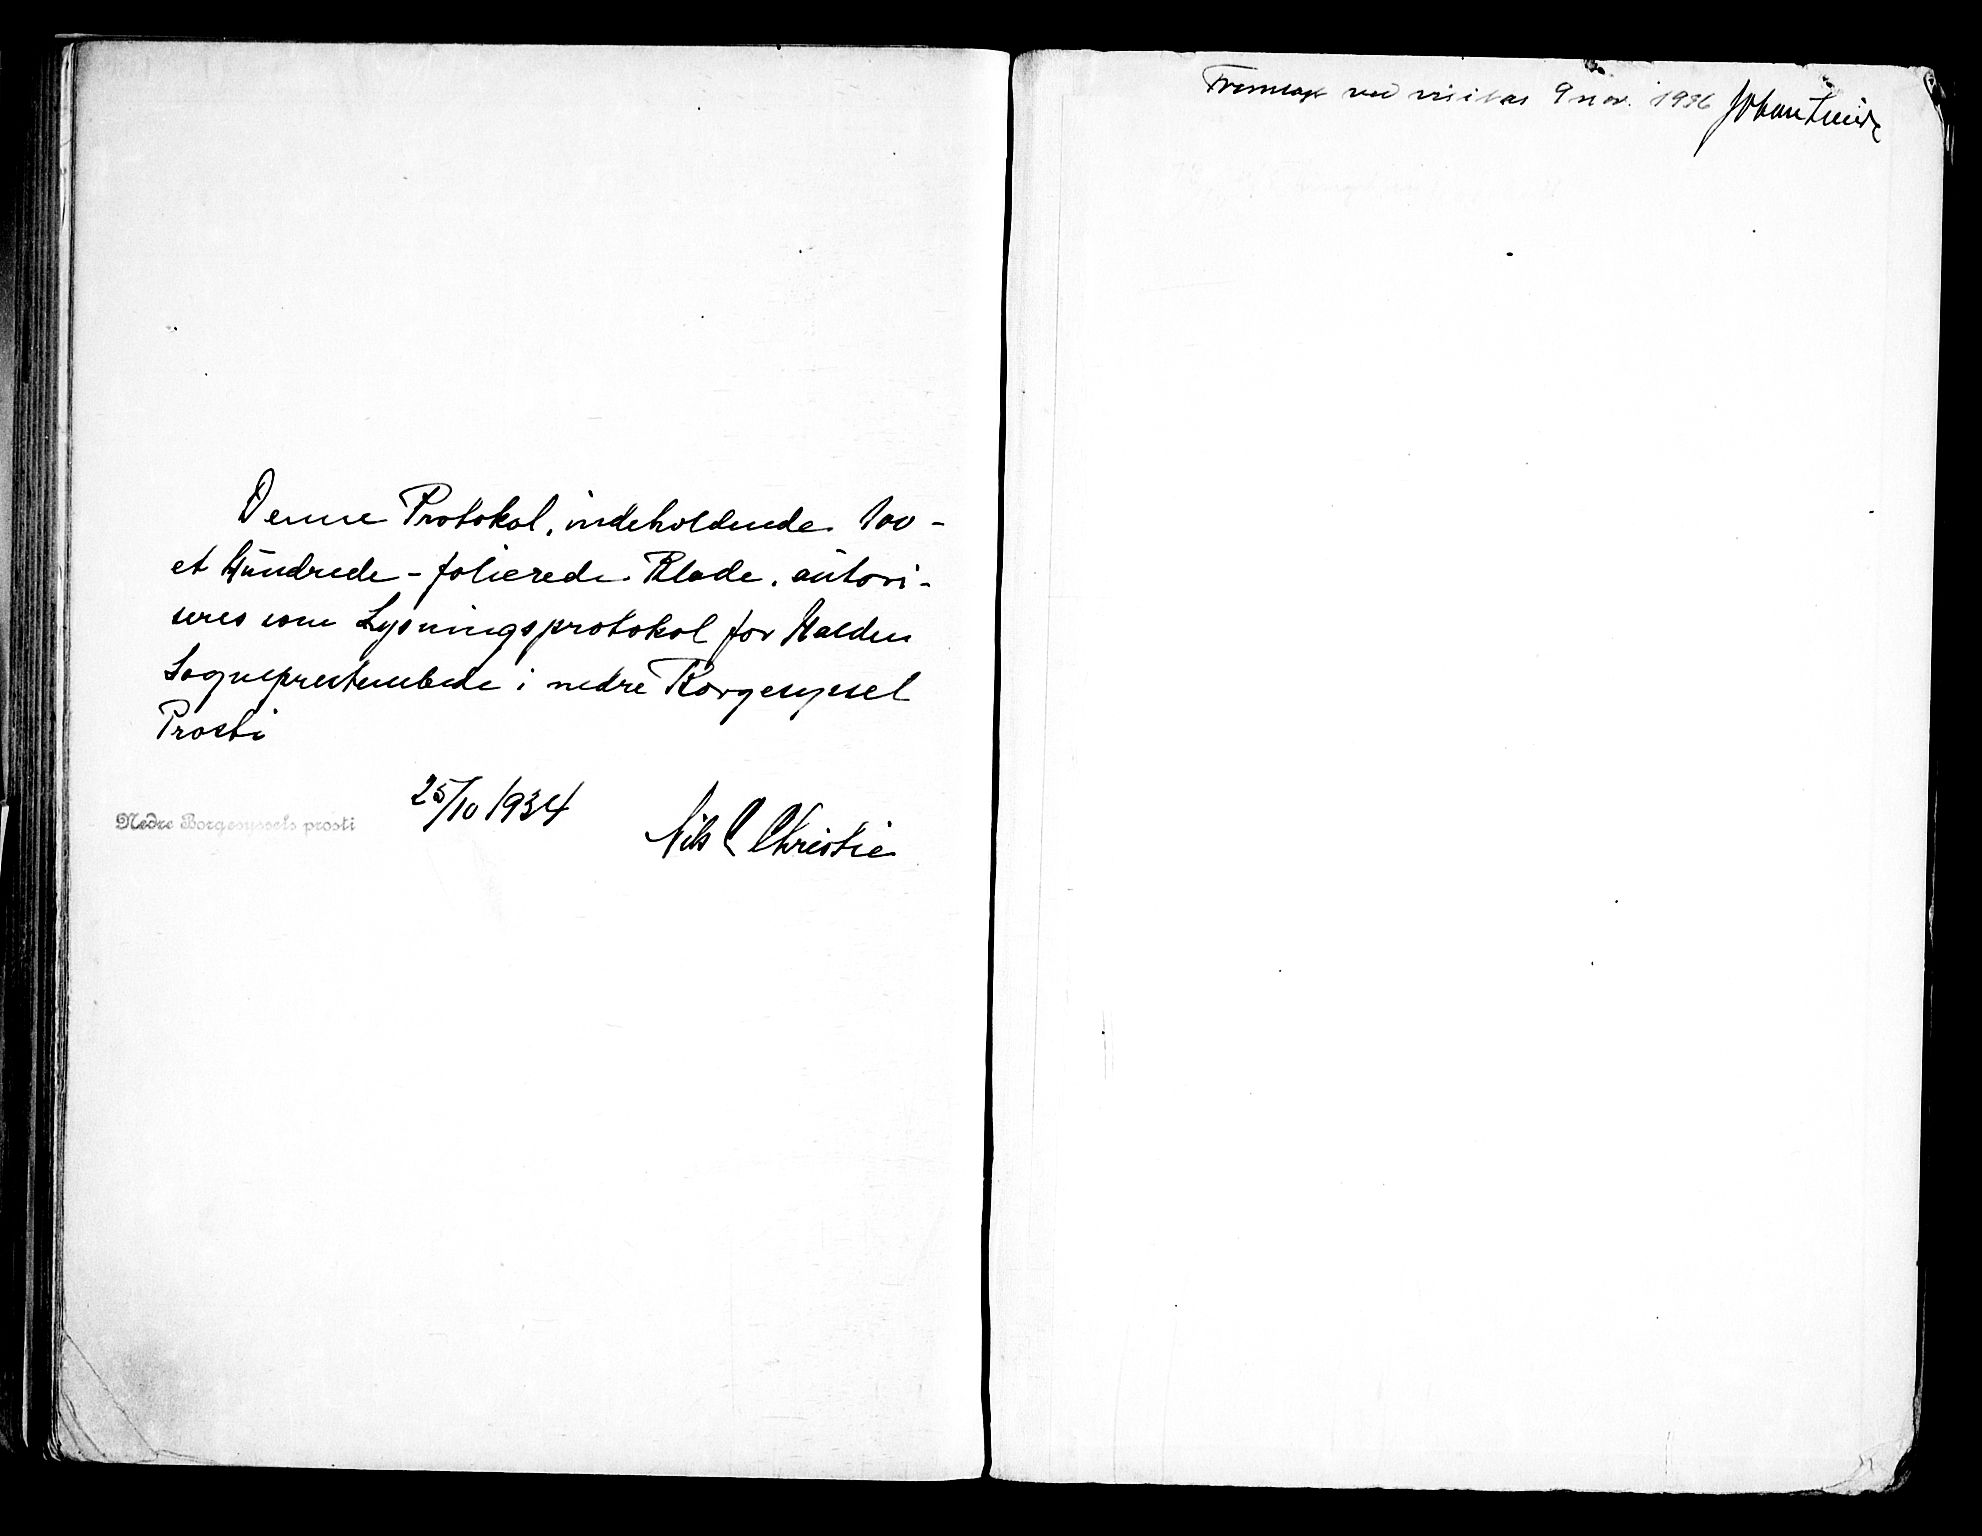 Denne Protokol, indeholdende 100 -
et Hundrede - folierede Blade, autori-
seres som Lysningsprotokol for Halden
Sogneprestembede i nedre Borgesyssel
Prosti
25/10 1934
Nedre Borgesyssels prosti
Nils C Christie
Fremlagt ved visitas 9 nov. 1936 Johan